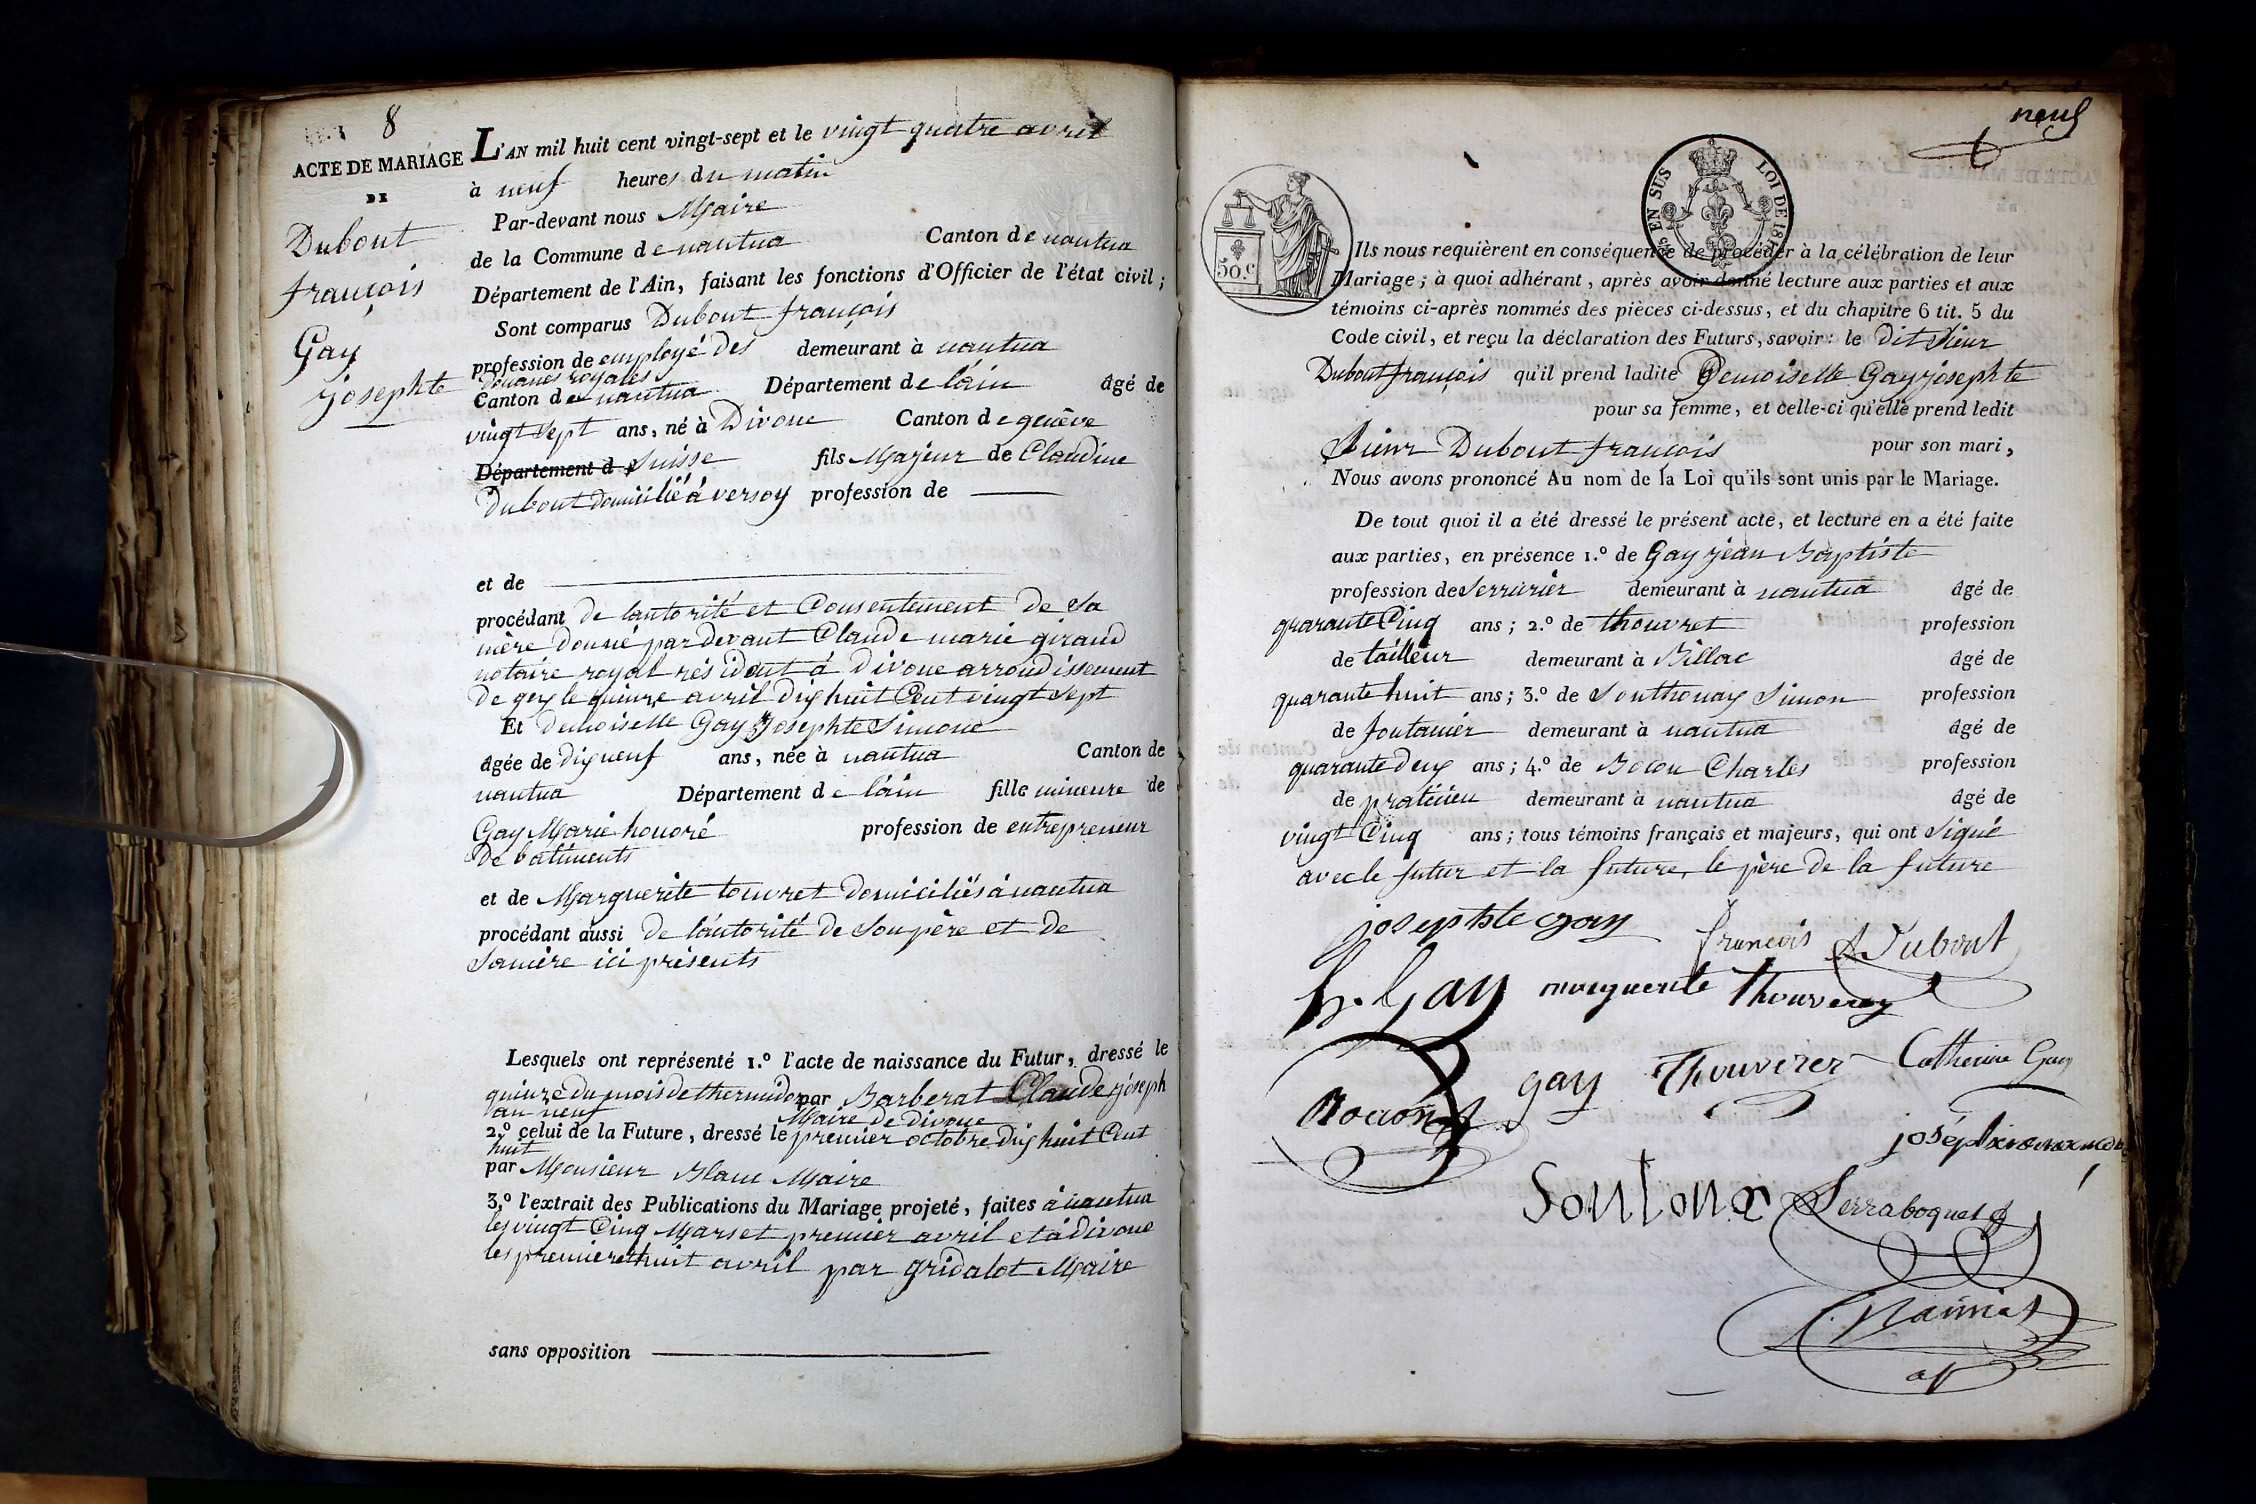 8
ACTE DE MARIAGE
DE
Dubout
françois
Gay
josephte
L'AN mil huit cent vingt-sept et le vingt quatre avril
à neuf heures du matin
Par-devant nous Maire
de la Commune de nantua Canton de nantua
Département de l'Ain, faisant les fonctions d'Officier de l'état civil ;
Sont comparus Dubout françois
profession de employé des demeurant à nantua
douanes royales
Canton de nantua Département de l'ain âgé de
vingt sept ans, né à Divone Canton de genève
Département d Suisse fils Majeur de Claudine
Dubout domicilié à versoy profession de
et de
procédant de lautorité et Consentement de Sa
mère donné pardevant Claude marie giraud
notaire royal résidant à divone arrondissement
de gex le quinze avril dix huit Cent vingt Sept
Et demoiselle Gay Josephte Simone
âgée de dix neuf ans, née à nantua Canton de
nantua Département de l'ain fille mineure de
Gay Marie honoré profession de entrepreneur
de batiments
et de Marguerite touvret domiciliés à nantua
procédant aussi de l'autorité de Son père et de
Samère ici présents
Lesquels ont représenté 1.º l'acte de naissance du Futur, dressé le
quinze du mois de thermidor par Barberat Claude joseph
an neuf Maire de divone
2.º celui de la Future, dressé le premier octobre dix huit Cent
huit
par Monsieur Blanc Maire
3.º l'extrait des Publications du Mariage projeté, faites à nantua
les vingt Cinq Mars et premier avril et à divone
les premier et huit avril par gridalot Maire
sans opposition
neuf
EN SUS LOI DE 181
50.c
Ils nous requièrent en conséquence de procéder à la célébration de leur
Mariage ; à quoi adhérant, après avoir donné lecture aux parties et aux
témoins ci-après nommés des pièces ci-dessus, et du chapitre 6 tit. 5 du
Code civil, et reçu la déclaration des Futurs, savoir : le dit Sieur
Dubout françois qu'il prend ladite Demoiselle Gay josephte
pour sa femme, et celle-ci qu'elle prend ledit
Sieur Dubout françois pour son mari,
Nous avons prononcé Au nom de la Loi qu'ils sont unis par le Mariage.
De tout quoi il a été dressé le présent acte, et lecture en a été faite
aux parties, en présence 1.º de Gay jean Baptiste
profession de Serrurier demeurant à nantua âgé de
quarante Cinq ans ; 2.º de thouvret profession
de tailleur demeurant à Billac âgé de
quarante huit ans ; 3.º de Southonax Simon profession
de fontanier demeurant à nantua âgé de
quarante deux ans ; 4.º de Bocon Charles profession
de praticien demeurant à nantua âgé de
vingt Cinq ans ; tous témoins français et majeurs, qui ont Signé
avec le futur et la future, le père de la future
josephte gay francois Dubout
h. Gay marguerite Thouverey
gay Thouverer Catherine Gay
Bocon
Soutonax Serraboquet